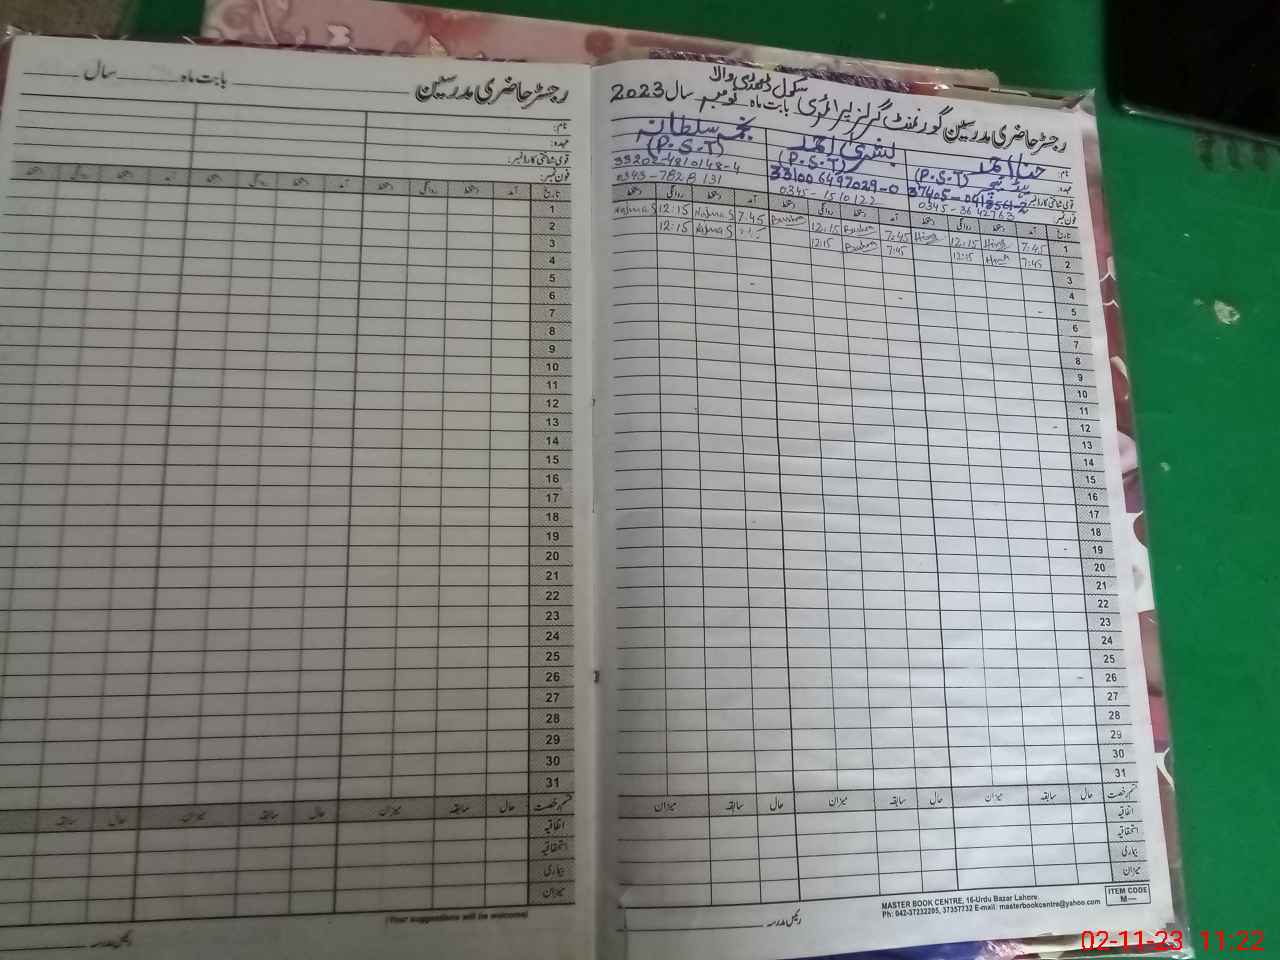 رجسٹر حاضری مدرسین گورنمنٹ گرلز پرائمری
سکول ڈھڈی والا
بابت ماہ نومبر سال 2023
نام: حنا بشریٰ نجمہ سلطانہ
عہدہ: (P.S.T) (P.S.T)
(P.S.T)
قومی شناختی کارڈ نمبر: 331006497029-0 33202-4810148-4
فون نمبر: 0345-3642763 0345-1510122 0343-7828131
تاریخ آمد دستخط روانگی دستخط آمد دستخط روانگی دستخط آمد دستخط روانگی دستخط
1 7:45 Hina 12:15 Hina 7:45 Bushra 12:15 Bushra 7:45 Najma S 12:15 Najma S
2 7:45 Hina 12:15 7:45 Bushra 12:15 Najma S 12:15
3
4
5
6
7
8
9
10
11
12
13
14
15
16
17
18
19
20
21
22
23
24
25
26
27
28
29
30
31
قسم رخصت حال سابقہ میزان حال سابقہ میزان حال سابقہ میزان
اتفاقیہ
استحقاقیہ
بیماری
میزان
ITEM CODE
M—
MASTER BOOK CENTRE, 16-Urdu Bazar Lahore
Ph: 042-37232205, 37357732 E-mail: masterbookcentre@yahoo.com
رئیس مدرسہ
رجسٹر حاضری مدرسین بابت ماہ سال
نام:
عہدہ:
قومی شناختی کارڈ نمبر:
فون نمبر:
تاریخ آمد دستخط روانگی دستخط آمد دستخط روانگی دستخط آمد دستخط روانگی دستخط
1
2
3
4
5
6
7
8
9
10
11
12
13
14
15
16
17
18
19
20
21
22
23
24
25
26
27
28
29
30
31
قسم رخصت حال سابقہ میزان حال سابقہ میزان حال سابقہ
اتفاقیہ
استحقاقیہ
بیماری
میزان
(Your suggestions will be welcome)
رئیس مدرسہ
02-11-23 11:22